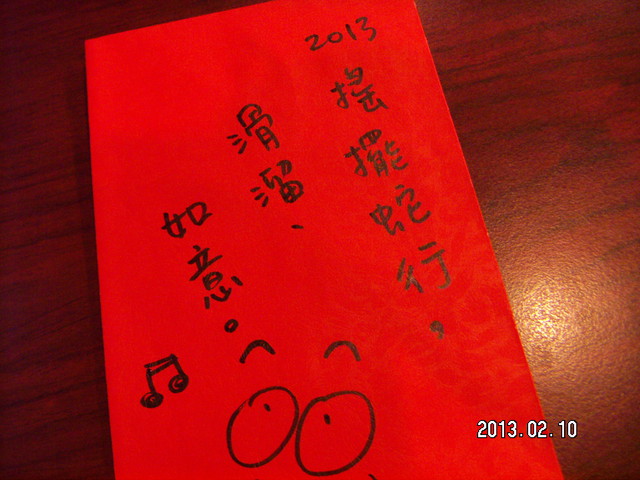 2013
搖擺蛇行，
滑溜、
如意。
2013.02.10